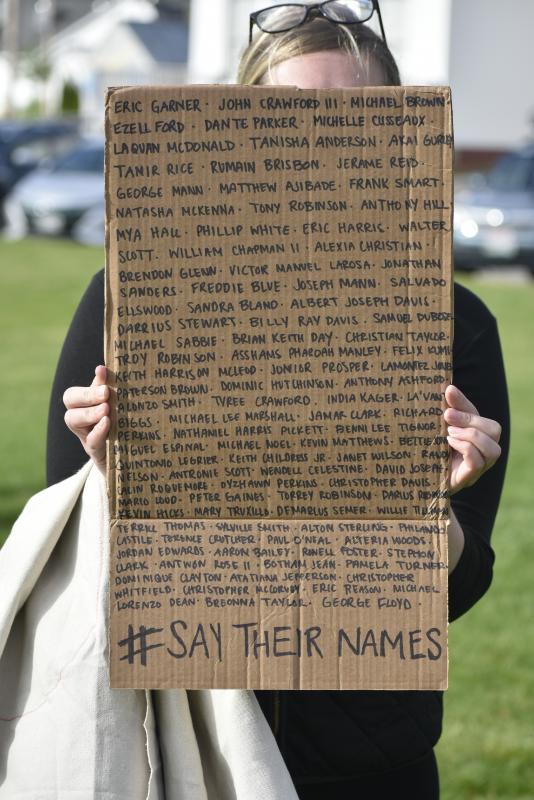 ERIC GARNER · JOHN CRAWFORD III · MICHAEL BROWN
EZELL FORD · DANTE PARKER · MICHELLE CUSSEAUX ·
LAQUAN MCDONALD · TANISHA ANDERSON · AKAI GURLEY
TAMIR RICE · RUMAIN BRISBON · JERAME REID ·
GEORGE MANN · MATTHEW AJIBADE · FRANK SMART ·
NATASHA MCKENNA · TONY ROBINSON · ANTHONY HILL
MYA HALL · PHILLIP WHITE · ERIC HARRIS · WALTER
SCOTT · WILLIAM CHAPMAN II · ALEXIA CHRISTIAN ·
BRENDON GLENN · VICTOR MANUEL LAROSA · JONATHAN
SANDERS · FREDDIE BLUE · JOSEPH MANN · SALVADO
ELLSWOOD · SANDRA BLAND · ALBERT JOSEPH DAVIS ·
DARRIUS STEWART · BILLY RAY DAVIS · SAMUEL DUBOSE
MICHAEL SABBIE · BRIAN KEITH DAY · CHRISTIAN TAYLOR ·
TROY ROBINSON · ASSHAMS PHAROAH MANLEY · FELIX KUMI
KEITH HARRISON MCLEOD · JUNIOR PROSPER · LAMONTEZ JONES
PATERSON BROWN · DOMINIC HUTCHINSON · ANTHONY ASHFORD
ALONZO SMITH · TYREE CRAWFORD · INDIA KAGER · LA'VANTE
BIGGS · MICHAEL LEE MARSHALL · JAMAR CLARK · RICHARD
PERKINS · NATHANIEL HARRIS PICKETT · BENNI LEE TIGNOR ·
MIGUEL ESPINAL · MICHAEL NOEL · KEVIN MATTHEWS · BETTIE JONES
QUINTONIO LEGRIER · KEITH CHILDRESS JR · JANET WILSON · RANDY
NELSON · ANTRONIE SCOTT · WENDELL CELESTINE · DAVID JOSEPH
CALIN ROQUEMORE · DYZHAWN PERKINS · CHRISTOPHER DAVIS ·
MARCO LOUD · PETER GAINES · TORREY ROBINSON · DARIUS ROBINSON
KEVIN HICKS · MARY TRUXILLO · DEMARCUS SEMER · WILLIE TILLMAN
TERRILL THOMAS · SYLVILLE SMITH · ALTON STERLING · PHILANDO
CASTILE · TERENCE CRUTCHER · PAUL O'NEAL · ALTERIA WOODS ·
JORDAN EDWARDS · AARON BAILEY · RONELL FOSTER · STEPHON
CLARK · ANTWON ROSE II · BOTHAM JEAN · PAMELA TURNER
DOMINIQUE CLAYTON · ATATIANA JEFFERSON · CHRISTOPHER
WHITFIELD · CHRISTOPHER MCCORVEY · ERIC REASON · MICHAEL
LORENZO DEAN · BREONNA TAYLOR · GEORGE FLOYD ·
#SAY THEIR NAMES